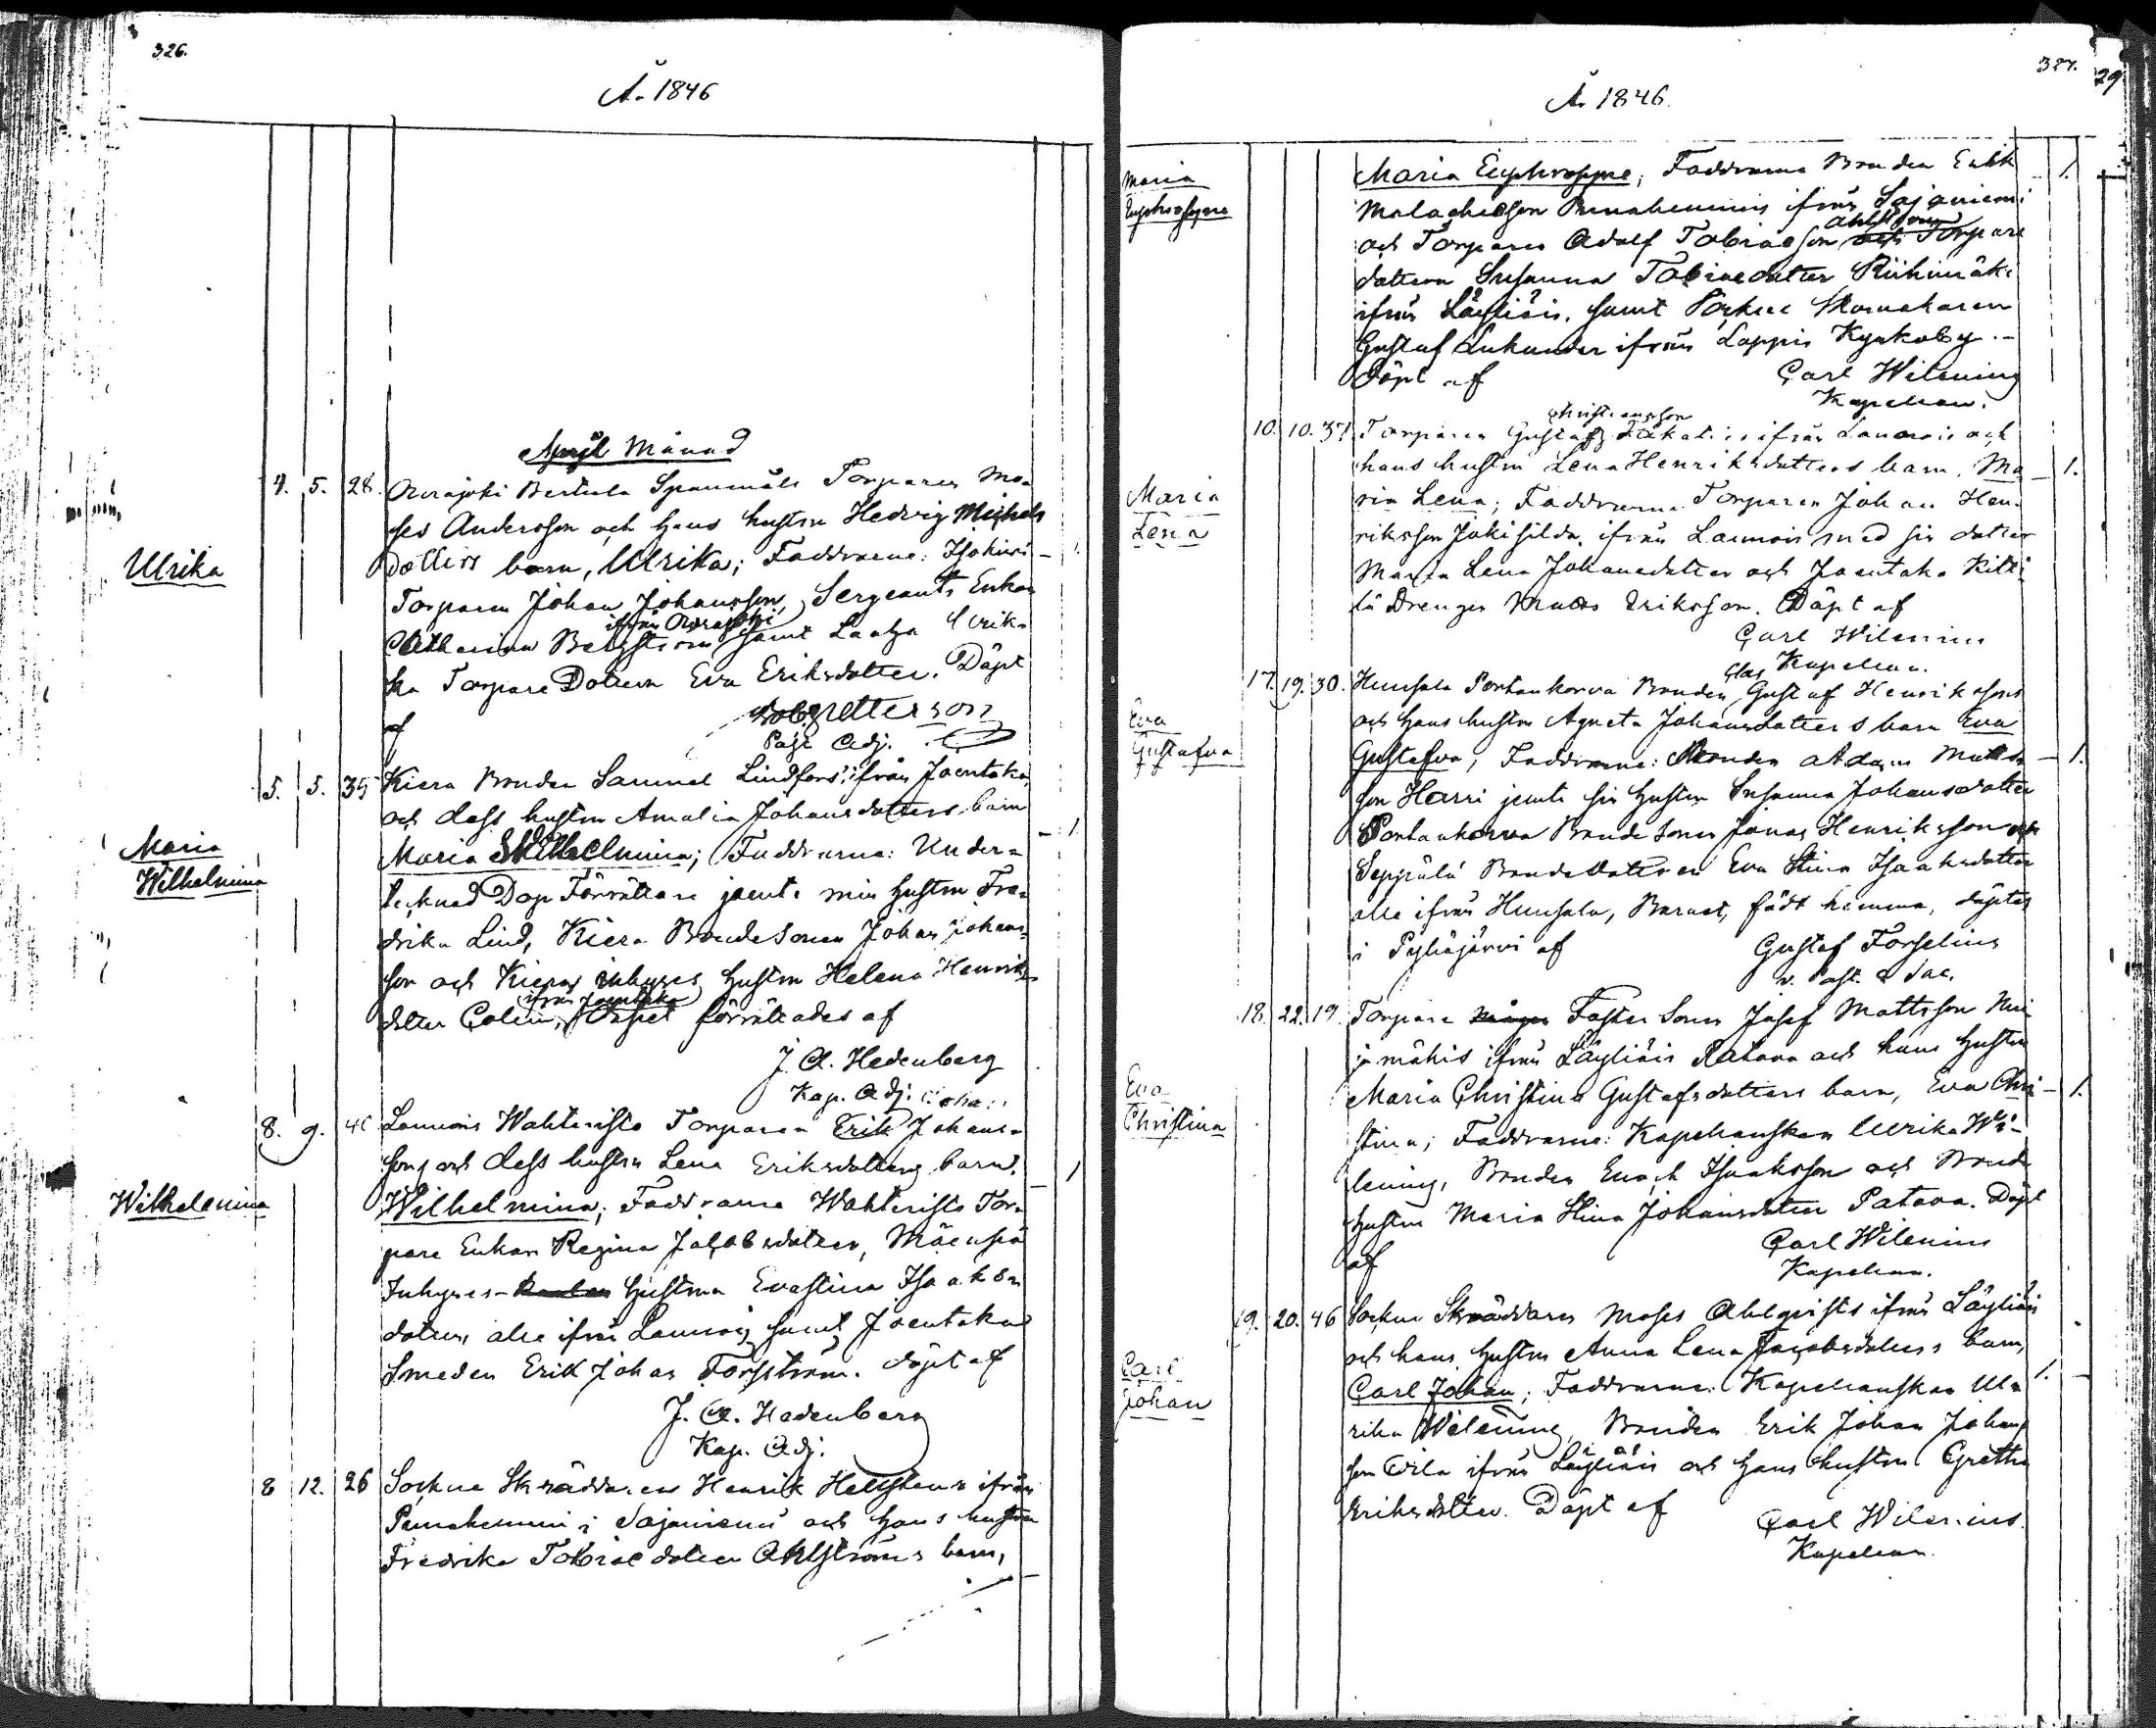 326.
Å. 1846
April Månad
Ulrika
4. 5. 28. Ourajoki Bertula Spanmåls Torparen Mo-
ses Andersson och hans hustru Hedvig Michels
dotters barn, Ulrika; Faddrarne:
Torparen Johan Johansson, Sergeants Enkan
ifrån Ourajoki
Catharina Bergström samt Ulrik-
ka Torpare Dottern Eva Eriksdotter. Döpt
af
Past. Adj.
Maria
Wilhelmina
5. 5. 35 Kiera Bonden Samuel Lindfors ifrån Joentaka
och dess hustru Amalia Johansdotters barn
Maria Wilhelmina; Faddrarne: Under-
tecknad Dop Förrättare jemte min hustru Fre-
drika Lind, Kiera Bondesonen Johan Johans-
son och Kieras inhyses hustru Helena Henriks
ifrån Joentaka
dotter Colin, Dopet förrättades af
J. A. Hedenberg
Kap. Adj.
Wilhelmina
8. 9. Launois Wahteristo Torparen Erik Johans-
sons och dess hustru Lena Eriksdotters barn,
Wilhelmina; Faddrarne Wahteristo Tor-
pare Enkan Regina Jacobsdotter, Mäenpää
Inhyses- hustrun Evastina Isaaks-
dotter, alla ifrån Launois samt Joentaka
Smeden Erik Johan Forsström. döpt af
J. A. Hedenberg
Kap. Adj.
8 12. 26 Sockne Skräddaren Henrik Hellstens ifrån
Penaheimi i Sajaniemi och hans hustru
Fredrika Tobiaedotter Ahlströms barn,
327.
29
Å. 1846.
Maria
Euphrosyne
Maria Euphrosyne; Faddrarne Bonden Erik
Malachiesson ifrån Sajaniemi
Ahlström
och Torparen Adolf Tobiaeson och Torpare
dottern Susanna Tobiaedotter Riihimäki
ifrån Läyliäis, samt Sockne Skomakaren
Gustaf ifrån Loppis Kyrkoby.-
Döpt af Carl Wilenius
Kapellan.
Christiansson
10. 10. 37 Torparen Gustaf ifrån Launois och
Maria
Lena
hans hustru Lena Henriksdotters barn, Ma- 1.
ria Lena; Faddrarne Torparen Johan Hen-
riksson Jokisilda, ifrån Launois med sin dotter
Maria Lena Johansdotter och Joentaka Kitti-
lä Drengen Eriksson. Döpt af
Carl Wilenius
Kapellan.
Clas
17. 19. 30. Hunsala Portankorva Bonden Gustaf Henrikssons
Eva
Gustafva
och hans hustru Agneta Johansdotters barn Eva
Gustafva; Faddrarne: Bonden Adam Matts- 1.
son Harri jemte sin hustru Susanna Johansdotter
Portankorva Bondesonen Jonas Henriksson och
Seppälä Bondedottren Eva Stina Isaaksdotter
alla ifrån Hunsala, Barnet, födt hemma, döptes
i Pyhäjärvi af Gustaf Forselius
v. Past. & Sac.
18. 22. 19. Torpare Foster Sonen Josef Mattsson
mäkis ifrån Läyliäis Patava och hans hustru
Eva
Christina
Maria Christina Gustafsdotters barn, Eva Chri- 1.
stina; Faddrarne: Kapellanskan Ulrika Wi-
lenius, Bonden Enoch Isaaksson och Bonde
hustrun Maria Stina Johansdotter Patava. Döpt
af Carl Wilenius
Kapellan.
19. 20. 46 Sockne Skräddaren Moses Ahlqvists ifrån Läyliäis
Carl
Johan
och hans hustru Anna Lena Jacobsdotters barn,
Carl Johan; Faddrarne: Kapellanskan Ul- 1.
rika Wilenius, Bonden Erik Johan Johans
son ifrån Läyliäis och hans hustru Gretha
Eriksdotter. Döpt af Carl Wilenius.
Kapellan.